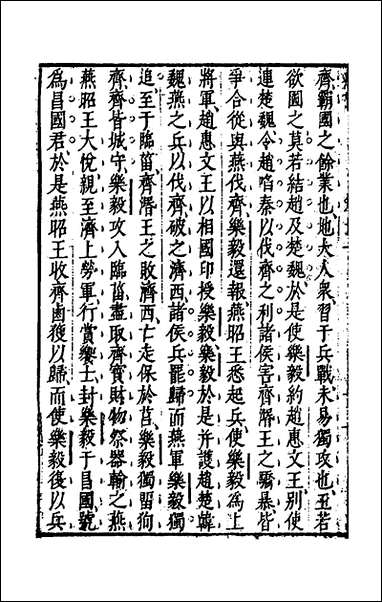 齊霸國之餘業也地大人衆習于兵戰未易獨攻也王若
欲圖之莫若結趙及楚魏於是使樂毅約趙惠文王別使
連楚魏令趙啗秦以伐齊之利諸侯害齊湣王之驕暴皆
爭合從與燕伐齊樂毅還報燕昭王悉起兵使樂毅爲上
將軍趙惠文王以相國印授樂毅樂毅於是并護趙楚韓
魏燕之兵以伐齊破之濟西諸侯兵罷歸而燕軍樂毅獨
追至于臨菑齊湣王之敗濟西亡走保於莒樂毅獨留狥
齊齊皆城守樂毅攻入臨菑盡取齊寶財物祭器輸之燕
燕昭王大悅親至濟上勞軍行賞饗士封樂毅于昌國號
爲昌國君於是燕昭王收齊鹵獲以歸而使樂毅復以兵